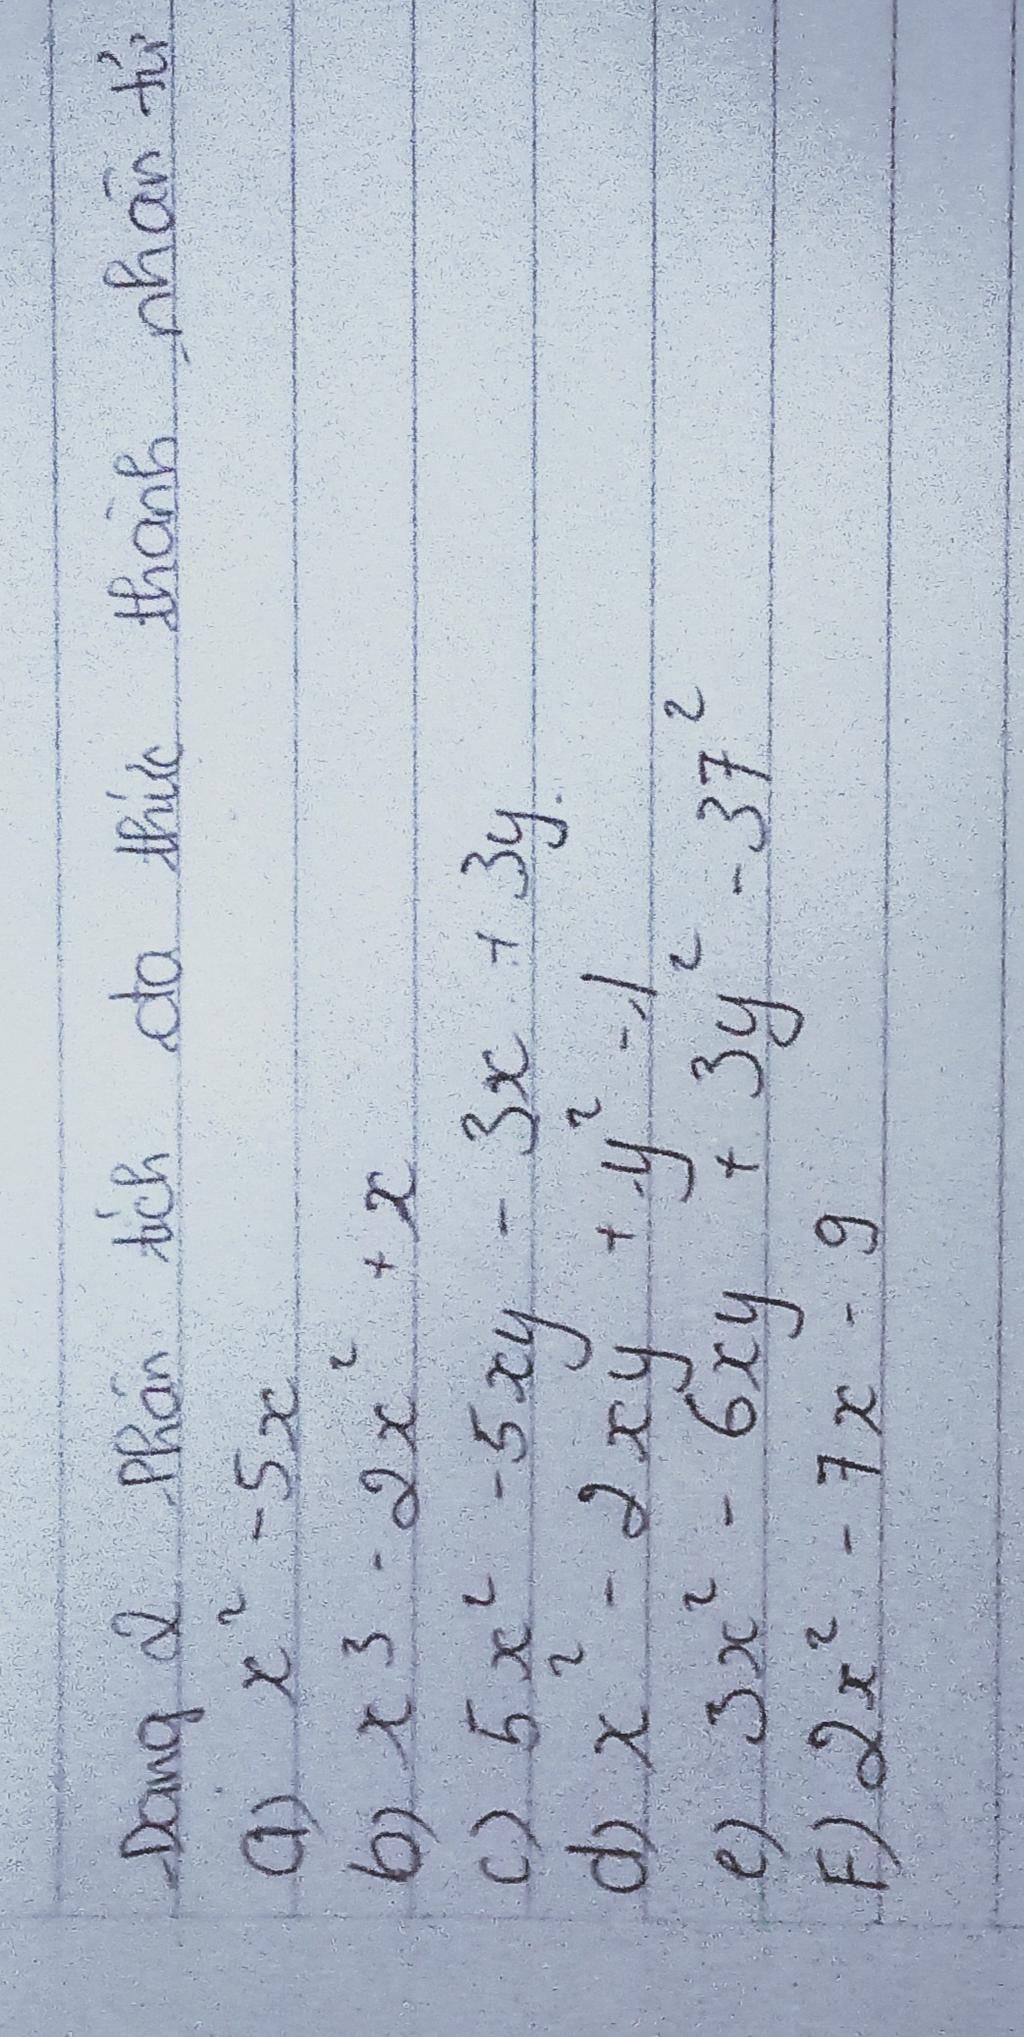 Dạng 2 Phân tích đa thức thành nhân tử
a) x² - 5x
b) x³ - 2x² + x
c) 5x² - 5xy - 3x + 3y.
d) x² - 2xy + y² - 1
e) 3x² - 6xy + 3y² - 37²
F) 2x² - 7x - 9